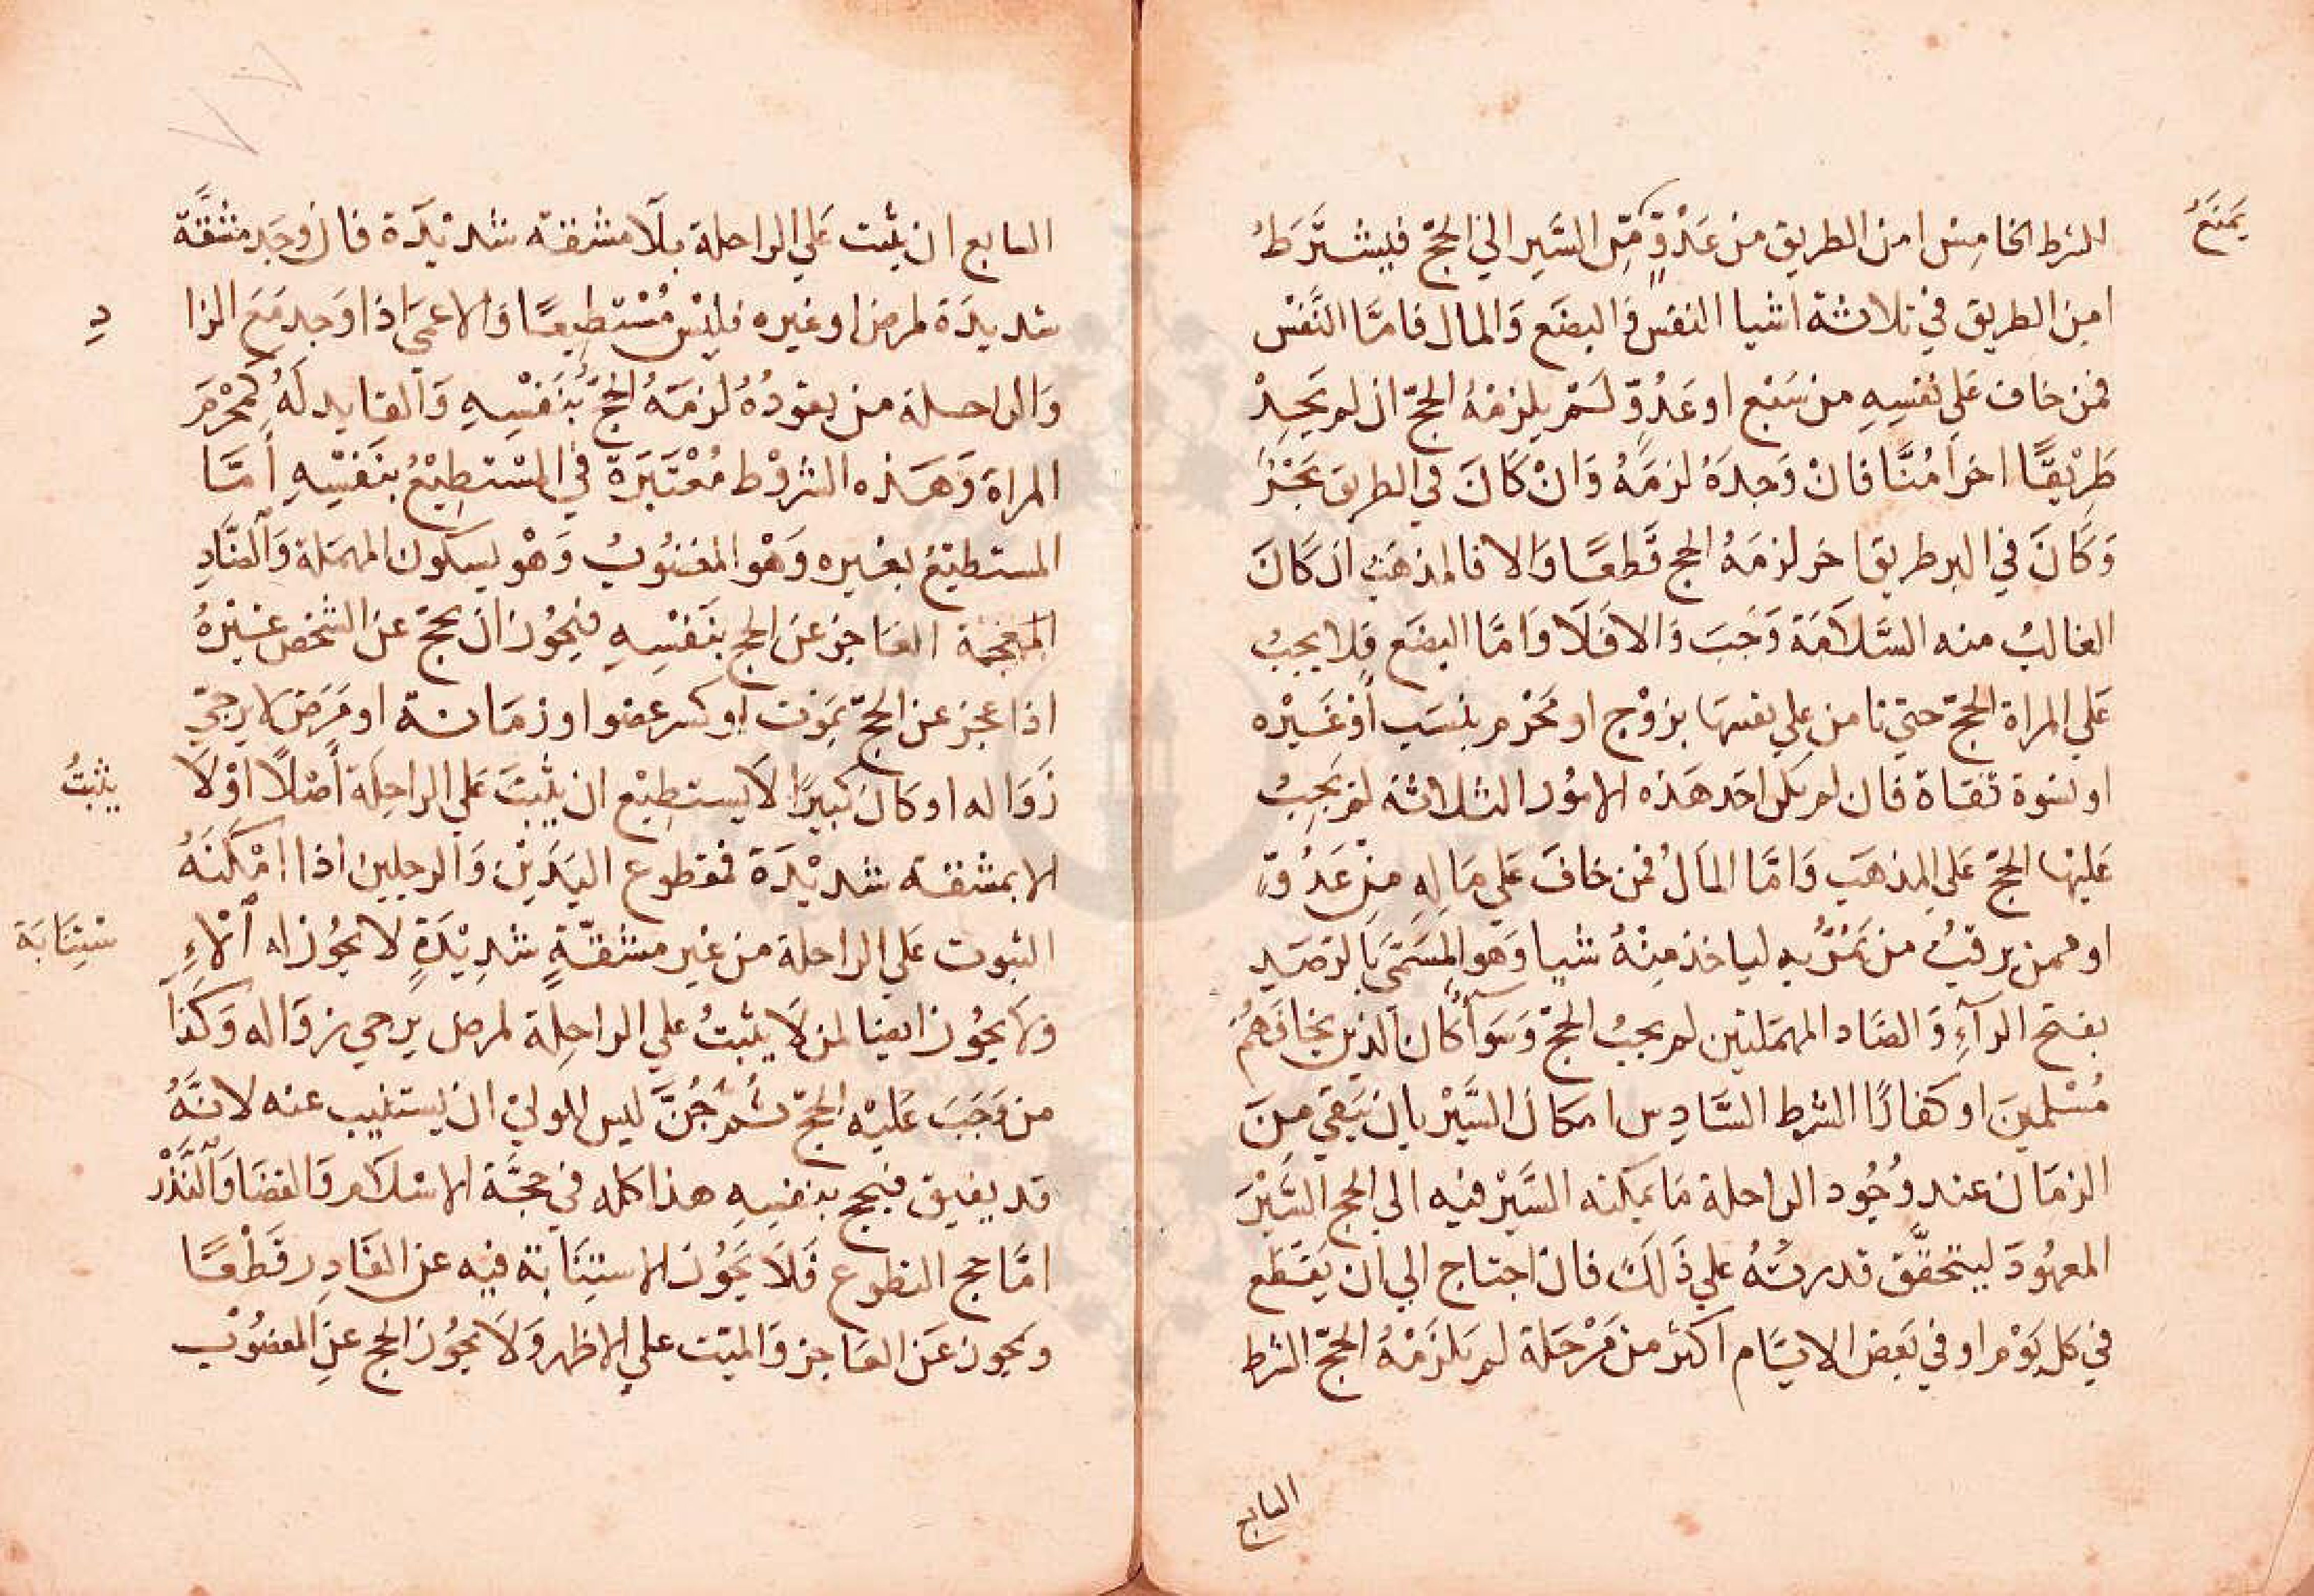 يَمنَعُ
الشرط الخامِس امن الطريق من عَدُوٍّ مِّن السَّيرِ الي الحجّ فيشتَرَطُ
امن الطريق في ثلاثة اشيا النفس وَالبضَع وَالمال فامَّا النَّفس
فمن خاف عَلي نفسِهِ من سَبْع او عَدُوّ لَمْ يلزمْهُ الحجّ ان لم يَجِدْ
طَرِيْقًا اخر امُنًا فانْ وَجدَهُ لزمَهُ وَانْ كَانَ في الطريق بَحْرٌ
وَكَانَ في البر طريق اخر لزمَهُ الحج قَطعًا وَالا فالمذهَب ان كَانَ
الغالبُ منه السَّلَامَة وَجَبَ وَالا فَلَا وَامَّا البضَع فلا يجبُ
عَلي المراة الحجّ حتي تامن علي نفسهَا بزوْج او مَحْرم بنسَب اوْ غَيْره
او نسْوة ثقاة فان لم يكن احَد هَذه الامُور الثلاثة لم يَجبْ
عَليْها الحجّ عَلي المذهَب وَامَّا المَالُ فمن خافَ عَلي مَالِهِ مِنْ عَدُوٍّ
او ممن يرقبُ من يَمُرُّ به لياخذ مِنْهُ شيا وَهو المسَمَّى بالرَصَدِ
بفتح الرآءِ وَالصَاد المهمَلتين لم يجبُ الحجّ وَسَوآءً كان الذين يخافَهُمْ
مُسْلمينَ او كفارًا الشرط السَّادِس امكان السَّيْر بان يَبْقي مِنَ
الزمَان عند وُجُود الراحلة مَا يمكنه السَّيْر فيْه الي الحج السَّيْرَ
المعهُودَ ليتحقَّق قدرتُهُ علي ذَلَكَ فان احتاج الي ان يَقطَع
في كل يَوْم او في بَعض الايَّام اكثَر من مَرْحَلة لم يَلزَمْهُ الحجّ الشرط
السابع
السابع ان يثبت عَلي الراحلة بلَا مشقة شدِيْدَة فان وَجَد مشقَّة
شديدَة لمرض او غيره فليْسَ مُسْتطِيعًا وَالاعمَي اذا وَجد مَعَ الزا
دِ
وَالراحلة من يقودُهُ لزمَهُ الحجُّ بنَفْسِهِ وَالقايد لَهُ كمَحْرَم
المراة وَهَذه الشروْط مُعْتَبَرَة في المسْتطِيْعُ بنَفسِهِ أمَّا
المستطيْعُ بغيره وَهْوَ المغضُوبُ وَهْو بسكون المهمَلة وَالضَّادِ
المعجمَة العَاجز عن الحج بنَفسِهِ فيجُوز ان يحجّ عن الشخص غيْرُهُ
اذا عجز عن الحجّ بمَوْت او كسر عضو او زمَانة او مَرَض لا يرجي
زَوَاله او كانَ كبيرًا لَا يستطِيْع ان يَثْبُتَ عَلي الراحِلَة أصْلًا اوْ لَا
يثبتُ
الا بمشقة شديْدَة فمقطوع اليَدَيْن وَالرجلين اذا امْكنَهُ
الثبوت عَلي الراحلة من غير مشقَّةٍ شدِيْدَةٍ لا تجُوز له الاِ
سْتِنَابَة
وَلا يجُوز ايضا لمن لَا يثبتُ علي الراحِلة لمرض يرجي زوَاله وَكَذا
من وَجَبَ عَليْه الحجّ ثمَّ جُنَّ ليس للولي ان يستنيب عنه لانَّهُ
قد يفيق فيحج بنفسِهِ هذا كله في حجَّة الاسْلام وَالقضَا وَالنَّذْر
امَّا حج التطوع فَلَا يَجُوز الاستِنَابَة فيْه عن القَادِر قَطْعًا
وَيجوز عَن العَاجز وَالميّت علي الاظهر وَلَا يجُوز الحج عن المعضُوْب